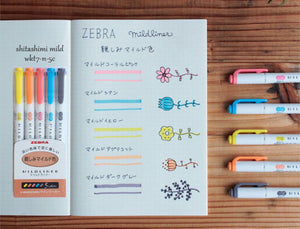 shitashimi mild
wkt7-n-5c
ZEBRA
親しみマイルド色
MILDLINER
ZEBRA mildliner
親しみマイルド色
マイルドコーラルピンク
マイルドシアン
マイルドイエロー
マイルドアプリコット
マイルドダークグレー